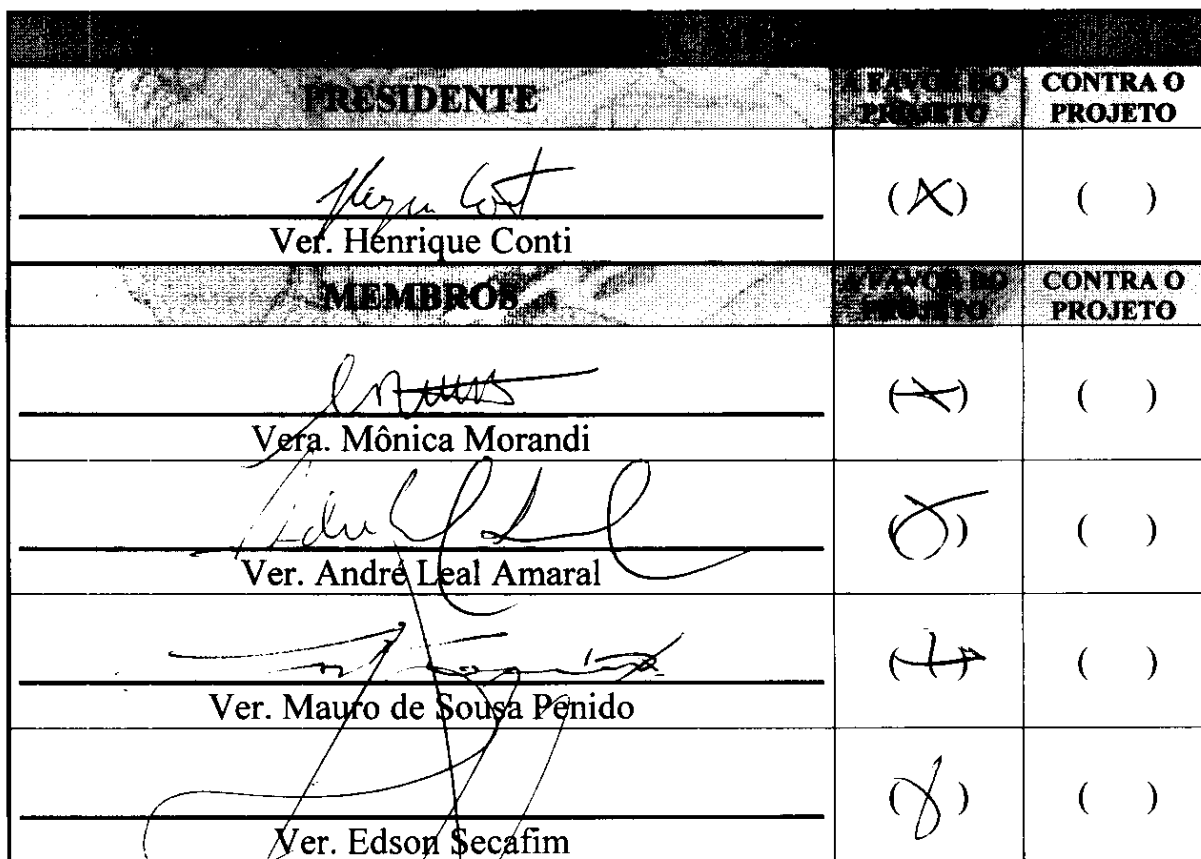 PRESIDENTE A FAVOR DO PROJETO CONTRA O PROJETO
(X) ( )
Ver. Henrique Conti
MEMBROS A FAVOR DO PROJETO CONTRA O PROJETO
(X) ( )
Vera. Mônica Morandi
(X) ( )
Ver. André Leal Amaral
(X) ( )
Ver. Mauro de Sousa Penido
(X) ( )
Ver. Edson Secafim